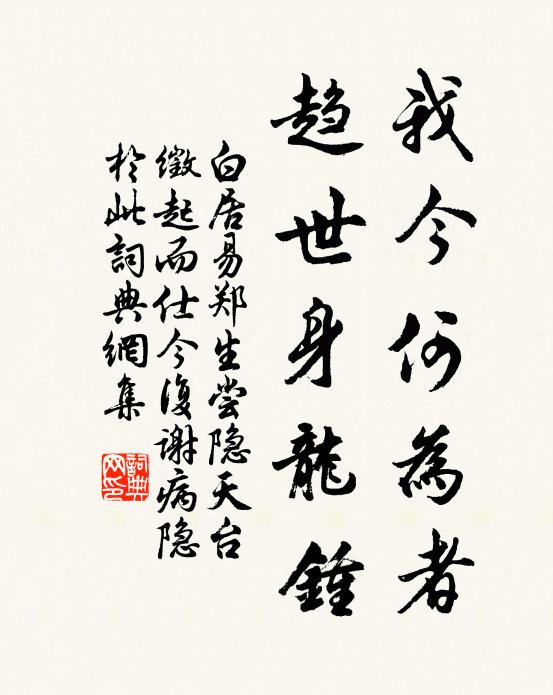 我今何為者
趋世身龍鍾
白居易郑生尝隐天台
徵起而仕今復谢病隐
於此詞典網集
詞典网印